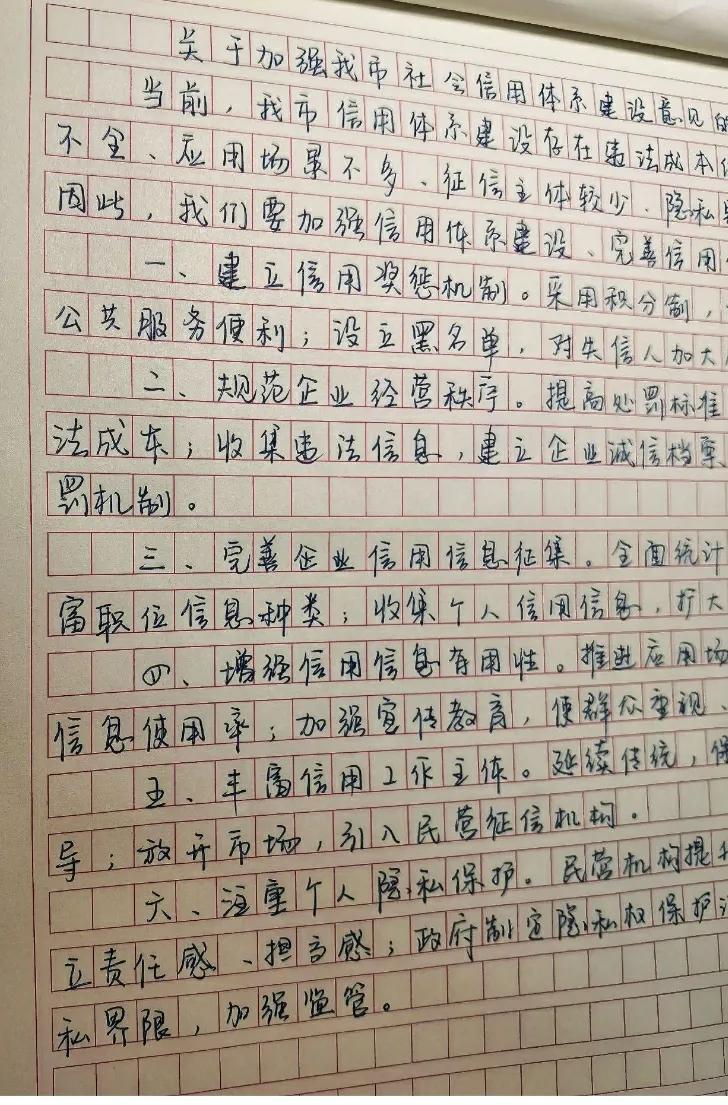 关于加强我市社会信用体系建设意见的
当前，我市信用体系建设存在违法成本
不全、应用场景不多、征信主体较少、隐私
因此，我们要加强信用体系建设、完善信用
一、建立信用奖惩机制。采用积分制，
公共服务便利；设立黑名单，对失信人加大
二、规范企业经营秩序。提高处罚标准
法成本；收集违法信息，建立企业诚信档案
罚机制。
三、完善企业信用信息征集。全面统计
富职位信息种类；收集个人信用信息，扩大
四、增强信用信息有用性。推进应用场
信息使用率；加强宣传教育，使群众重视、
五、丰富信用工作主体。延续传统，保
导；放开市场，引入民营征信机构。
六、注重个人隐私保护。民营机构提升
立责任感、担当感；政府制定隐私权保护
私界限，加强监管。